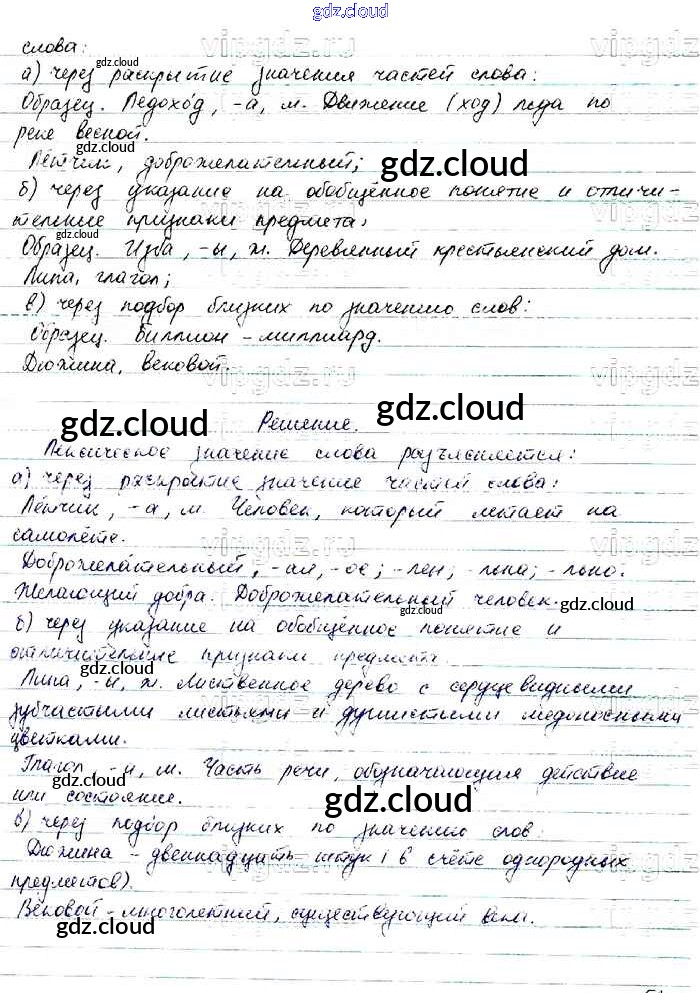 gdz.cloud
слова:
а) через раскрытие значения частей слова:
Образец. Ледоход, -а, м. Движение (ход) льда по
реке весной.
Лётчик, доброжелательный;
б) через указание на обобщённое понятие и отличи-
тельные признаки предмета:
Образец. Изба, -ы, ж. Деревянный крестьянский дом.
Липа, глагол;
в) через подбор близких по значению слов:
Образец. Биллион - миллиард.
Дюжина, вековой.
Решение.
Лексическое значение слова разъясняется:
а) через раскрытие значение частей слова:
Лётчик, -а, м. Человек, который летает на
самолёте.
Доброжелательный, -ая, -ое; -лен; -льна; -льно.
Желающий добра. Доброжелательный человек.
б) через указание на обобщённое понятие и
отличительные признаки предмета.
Липа, -ы, ж. Лиственное дерево с сердцевидными
зубчастыми листьями и душистыми медоносными
цветками.
Глагол, -и, м. Часть речи, обозначающия действие
или состояние.
в) через подбор близких по значению слов:
Дюжина - двенадцать штук (в счёте однородных
предметов).
Вековой - многолетний, существующий века.